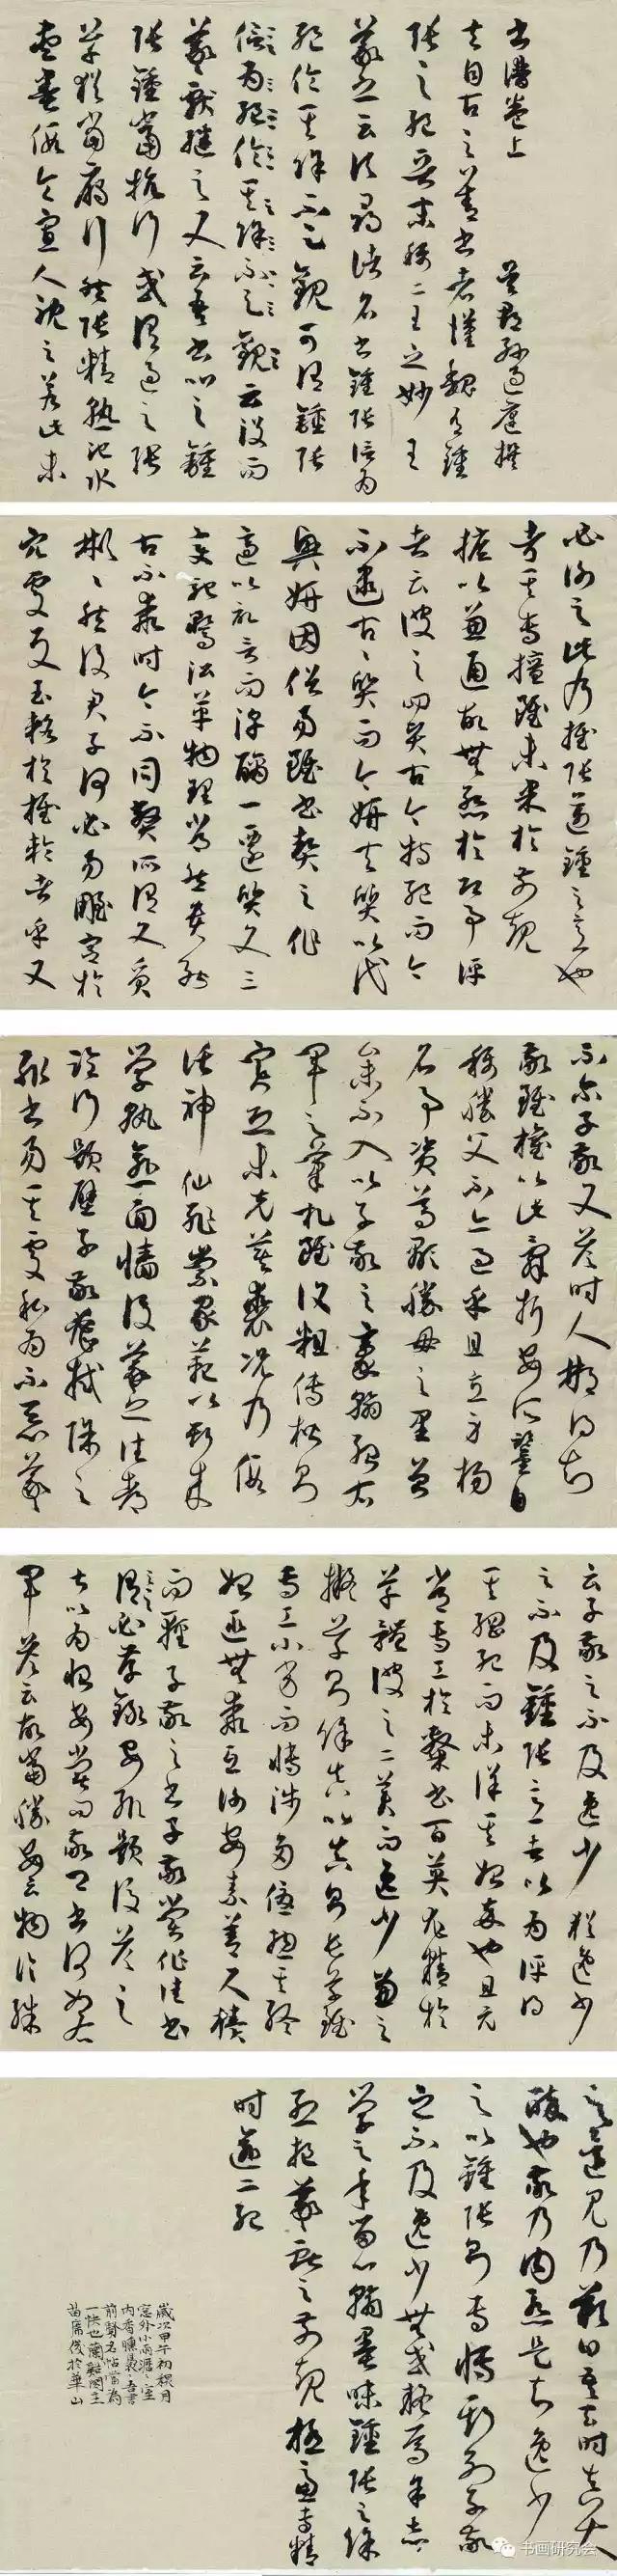 書譜卷上 吳郡孫過庭撰
夫自古之善書者漢魏有鍾
張之絕晉末稱二王之妙王
羲之云頃尋諸名書鍾張信為
絕倫其餘不足觀可謂鍾張
信為絕倫其餘不足觀云沒而
羲獻繼之又云吾書比之鍾
張鍾當抗行或謂過之張
草猶當雁行然張精熟池水
盡墨假令寡人耽之若此未
必謝之此乃推張邁鍾之意也
考其專擅雖未果於前規
摭以兼通故無慚於即事評
者云彼之四賢古今特絕而今
不逮古古質而今妍夫質以代
興妍因俗易雖書契之作
適以記言而淳醨一遷質文三
變馳騖沿革物理常然貴能
古不乖時今不同弊所謂文質
彬彬然後君子何必易雕宮於
穴處反玉輅於椎輪者乎又
不爾子敬又答時人那得知
敬雖權以此辭折安所鑒自
稱勝父不亦過乎且立身揚
名事資尊顯勝母之里曾
參不入以子敬之豪翰紹右
軍之筆札雖復粗傳楷則
實恐未克箕裘況乃假
託神仙恥崇家範以斯成
學孰愈面牆後羲之往都
臨行題壁子敬密拭除之
輒書易其處私為不惡羲
云子敬之不及逸少猶逸少
之不及鍾張意者以為評得
其綱紀而未詳其始卒也且元
常專工於隸書百英尤精於
草體彼之二美而逸少兼之
擬草則餘真比真則長草雖
專工小劣而博涉多優總其終
始匪無乖互謝安素善尺牘
而輕子敬之書子敬嘗作佳書
與之謂必存錄安輒題後答之
甚以為恨安嘗問敬卿書何如右
軍答云故當勝安云物論殊
之還見乃歎曰吾去時真大
醉也敬乃內慚是知逸少
之比鍾張則專博斯別子敬
之不及逸少無或疑焉余志
學之年留心翰墨味鍾張之餘
烈挹羲獻之前規極慮專精
時逾二紀
歲次甲午初秋月
窓外小雨瀝瀝室
內香燻裊吾書
前賢名帖當為
一快也蘭馨閣主
苗席俊於華山
书画研究会